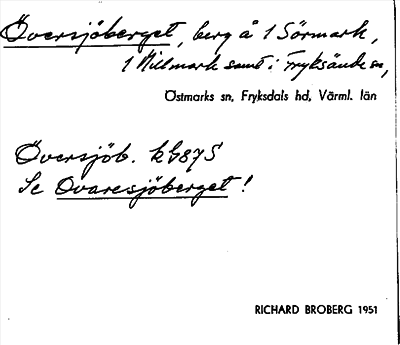 Översjöberget, berg å 1 Sörmark,
1 Millmark samt i Fryksände sn,
Östmarks sn, Fryksdals hd, Värml. län
Översjöb. kG87S
Se Ovaresjöberget!
RICHARD BROBERG 1951